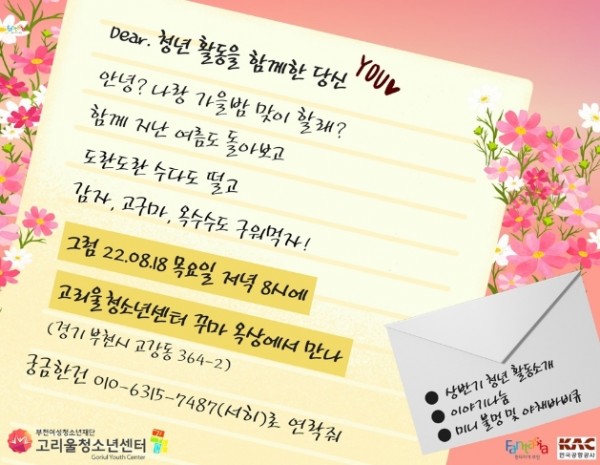 Dear. 청년 활동을 함께한 당신 YOU
안녕? 나랑 가을밤 맞이 할래?
함께 지난 여름도 돌아보고
도란도란 수다도 떨고
감자, 고구마, 옥수수도 구워먹자!
그럼 22.08.18 목요일 저녁 8시에
고리울청소년센터 꾸마 옥상에서 만나
(경기 부천시 고강동 364-2)
궁금한건 010-6315-7487(서희)로 연락줘
● 상반기 청년 활동소개
● 이야기나눔
● 미니 불멍 및 야채바비큐
부천여성청소년재단
고리울청소년센터
Goriul Youth Center
Fantasia
KAC
한국공항공사